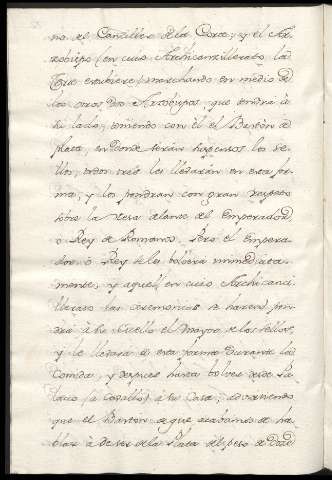 no el Canciller de la Corte; y el Ar-
zobispo (en cuio Archicancillerato la
Dieta estubiere) marchando en medio de
los otros dos Arzobispos, que tendrá á
su lado; teniendo con él el Bastón de
plata, en donde serán suspensos los se-
llos; todos tres les llevarán en esta for-
ma, y los pondran con gran respeto
sobre la Mesa delante del Emperador,
ò Rey de Romanos. Pero el Empera-
dor ò Rey se les bolverá immediata-
mente; y aquel, en cuio Archicanci-
llerato las ceremonias se hacen, pon-
drá à su Cuello el mayor de los sellos,
y le llevará de esta forma durante la
Comida, y despues hasta bolver de
lacio (a Cavallo) à su Casa; advirtiendo
que el Bastón de que acabamos de ha-
blar à de ser de la Plata del peso de Doce